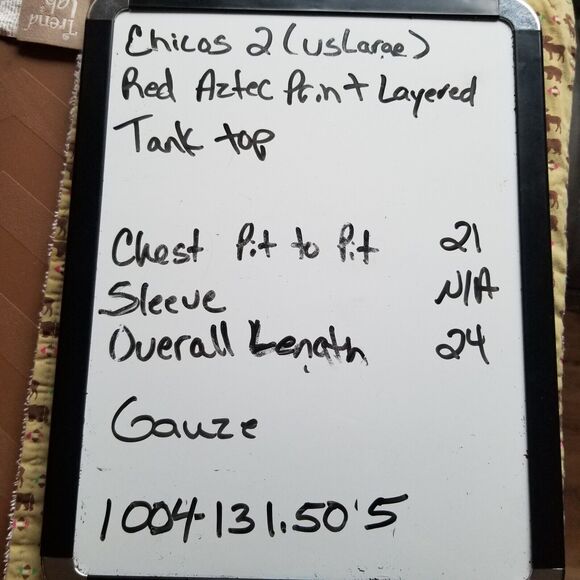 Trend
Lab
Chicos 2 (US Large)
Red Aztec Print Layered
Tank top
Chest Pit to Pit 21
Sleeve N/A
Overall Length 24
Gauze
1004-131.50'5